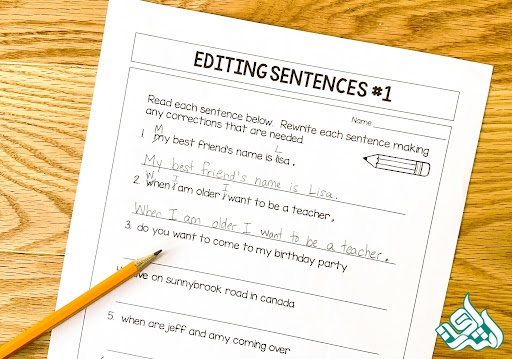 EDITING SENTENCES #1
Name:
Read each sentence below. Rewrite each sentence making
any corrections that are needed
M L
1. my best friend's name is lisa.
My best friend's name is Lisa.
W I I
2. when i am older i want to be a teacher,
When I am older I want to be a teacher.
3. do you want to come to my birthday party
live on sunnybrook road in canada
5. when are jeff and amy coming over